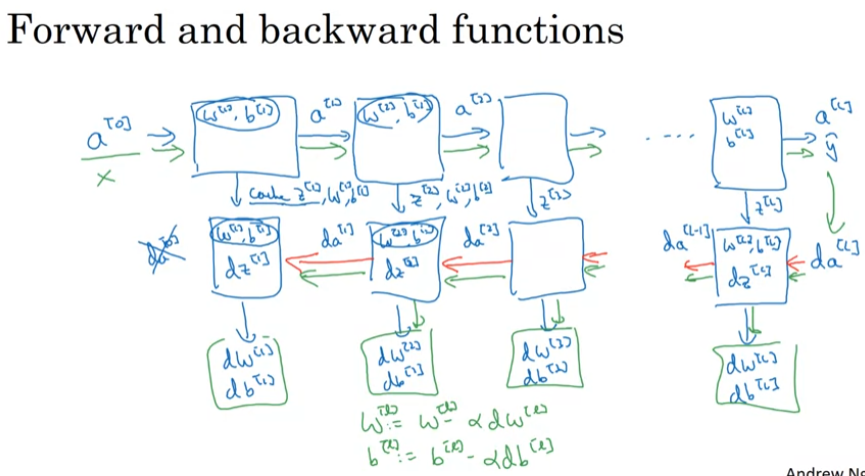 Forward and backward functions
a^[0] w^[1], b^[1] a^[1] w^[2], b^[2] a^[2] w^[L] a^[L]
x b^[L] ŷ
cache z^[1], w^[1], b^[1] z^[2], w^[2], b^[2] z^[3] .... z^[L]
da^[0] w^[1], b^[1] da^[1] w^[2], b^[2] da^[2] da^[L-1] w^[L], b^[L] da^[L]
dz^[1] dz^[2] dz^[L]
dw^[1] dw^[2] dw^[3] dw^[L]
db^[1] db^[2] db^[3] db^[L]
w^[l] := w^[l] - αdw^[l]
b^[l] := b^[l] - αdb^[l]
Andrew